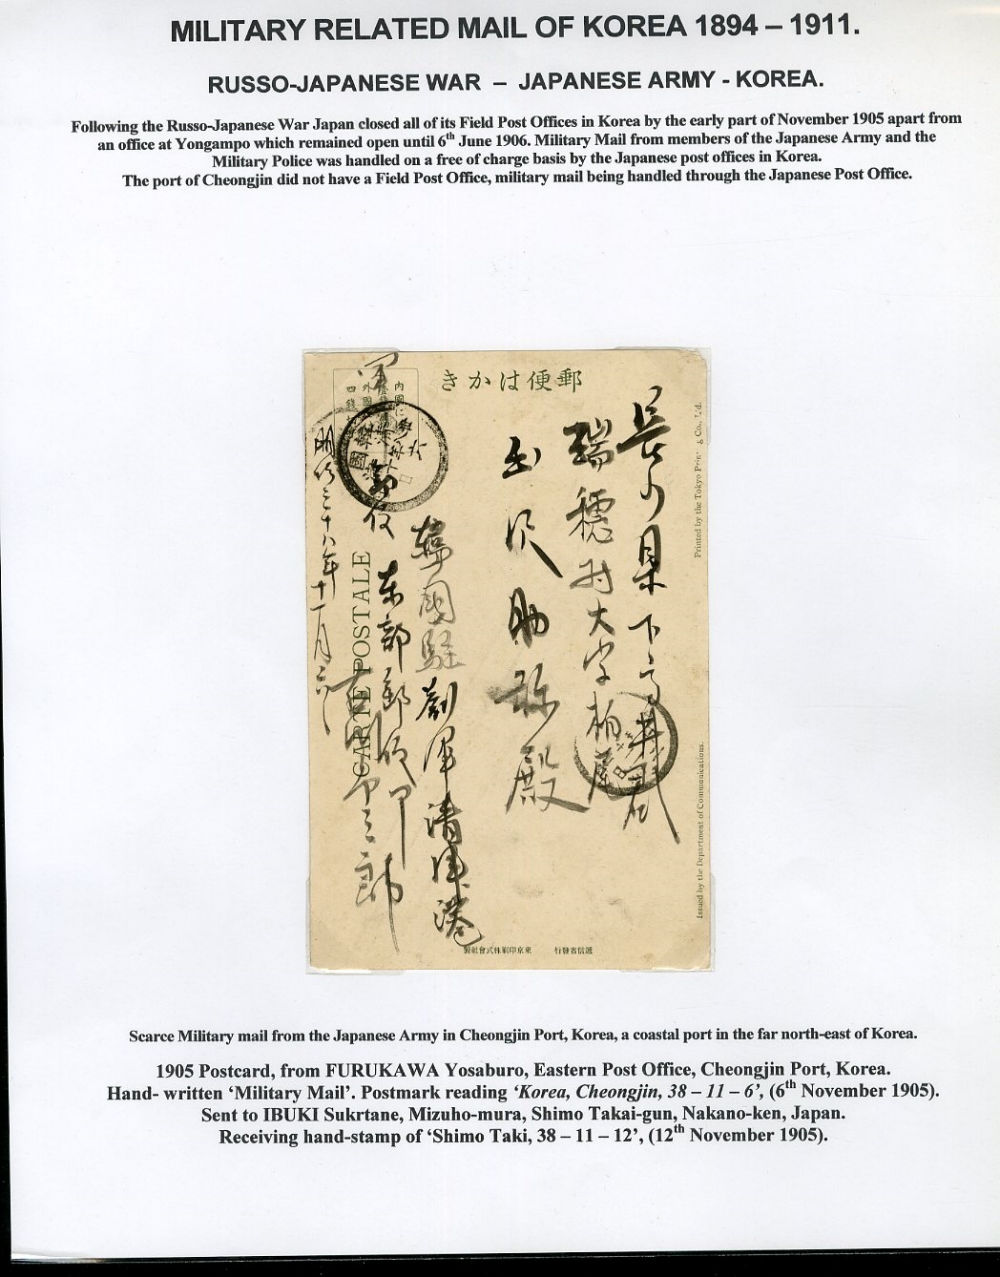 MILITARY RELATED MAIL OF KOREA 1894 – 1911.
RUSSO-JAPANESE WAR – JAPANESE ARMY - KOREA.
Following the Russo-Japanese War Japan closed all of its Field Post Offices in Korea by the early part of November 1905 apart from
an office at Yongampo which remained open until 6th June 1906. Military Mail from members of the Japanese Army and the
Military Police was handled on a free of charge basis by the Japanese post offices in Korea.
The port of Cheongjin did not have a Field Post Office, military mail being handled through the Japanese Post Office.
きかは便郵
下高井郡
瑞穂村大字柏尾
助弥殿
韓國駐劄軍清津港
軍
郵便
東部郵便
明治三十八年十一月六
CARTE POSTALE
Printed by the Tokyo Co., Ltd.
Issued by the Department of Communications.
製社會式株刷印京東
行發省信遞
Scarce Military mail from the Japanese Army in Cheongjin Port, Korea, a coastal port in the far north-east of Korea.
1905 Postcard, from FURUKAWA Yosaburo, Eastern Post Office, Cheongjin Port, Korea.
Hand- written ‘Military Mail’. Postmark reading ‘Korea, Cheongjin, 38 – 11 – 6’, (6th November 1905).
Sent to IBUKI Sukrtane, Mizuho-mura, Shimo Takai-gun, Nakano-ken, Japan.
Receiving hand-stamp of ‘Shimo Taki, 38 – 11 – 12’, (12th November 1905).